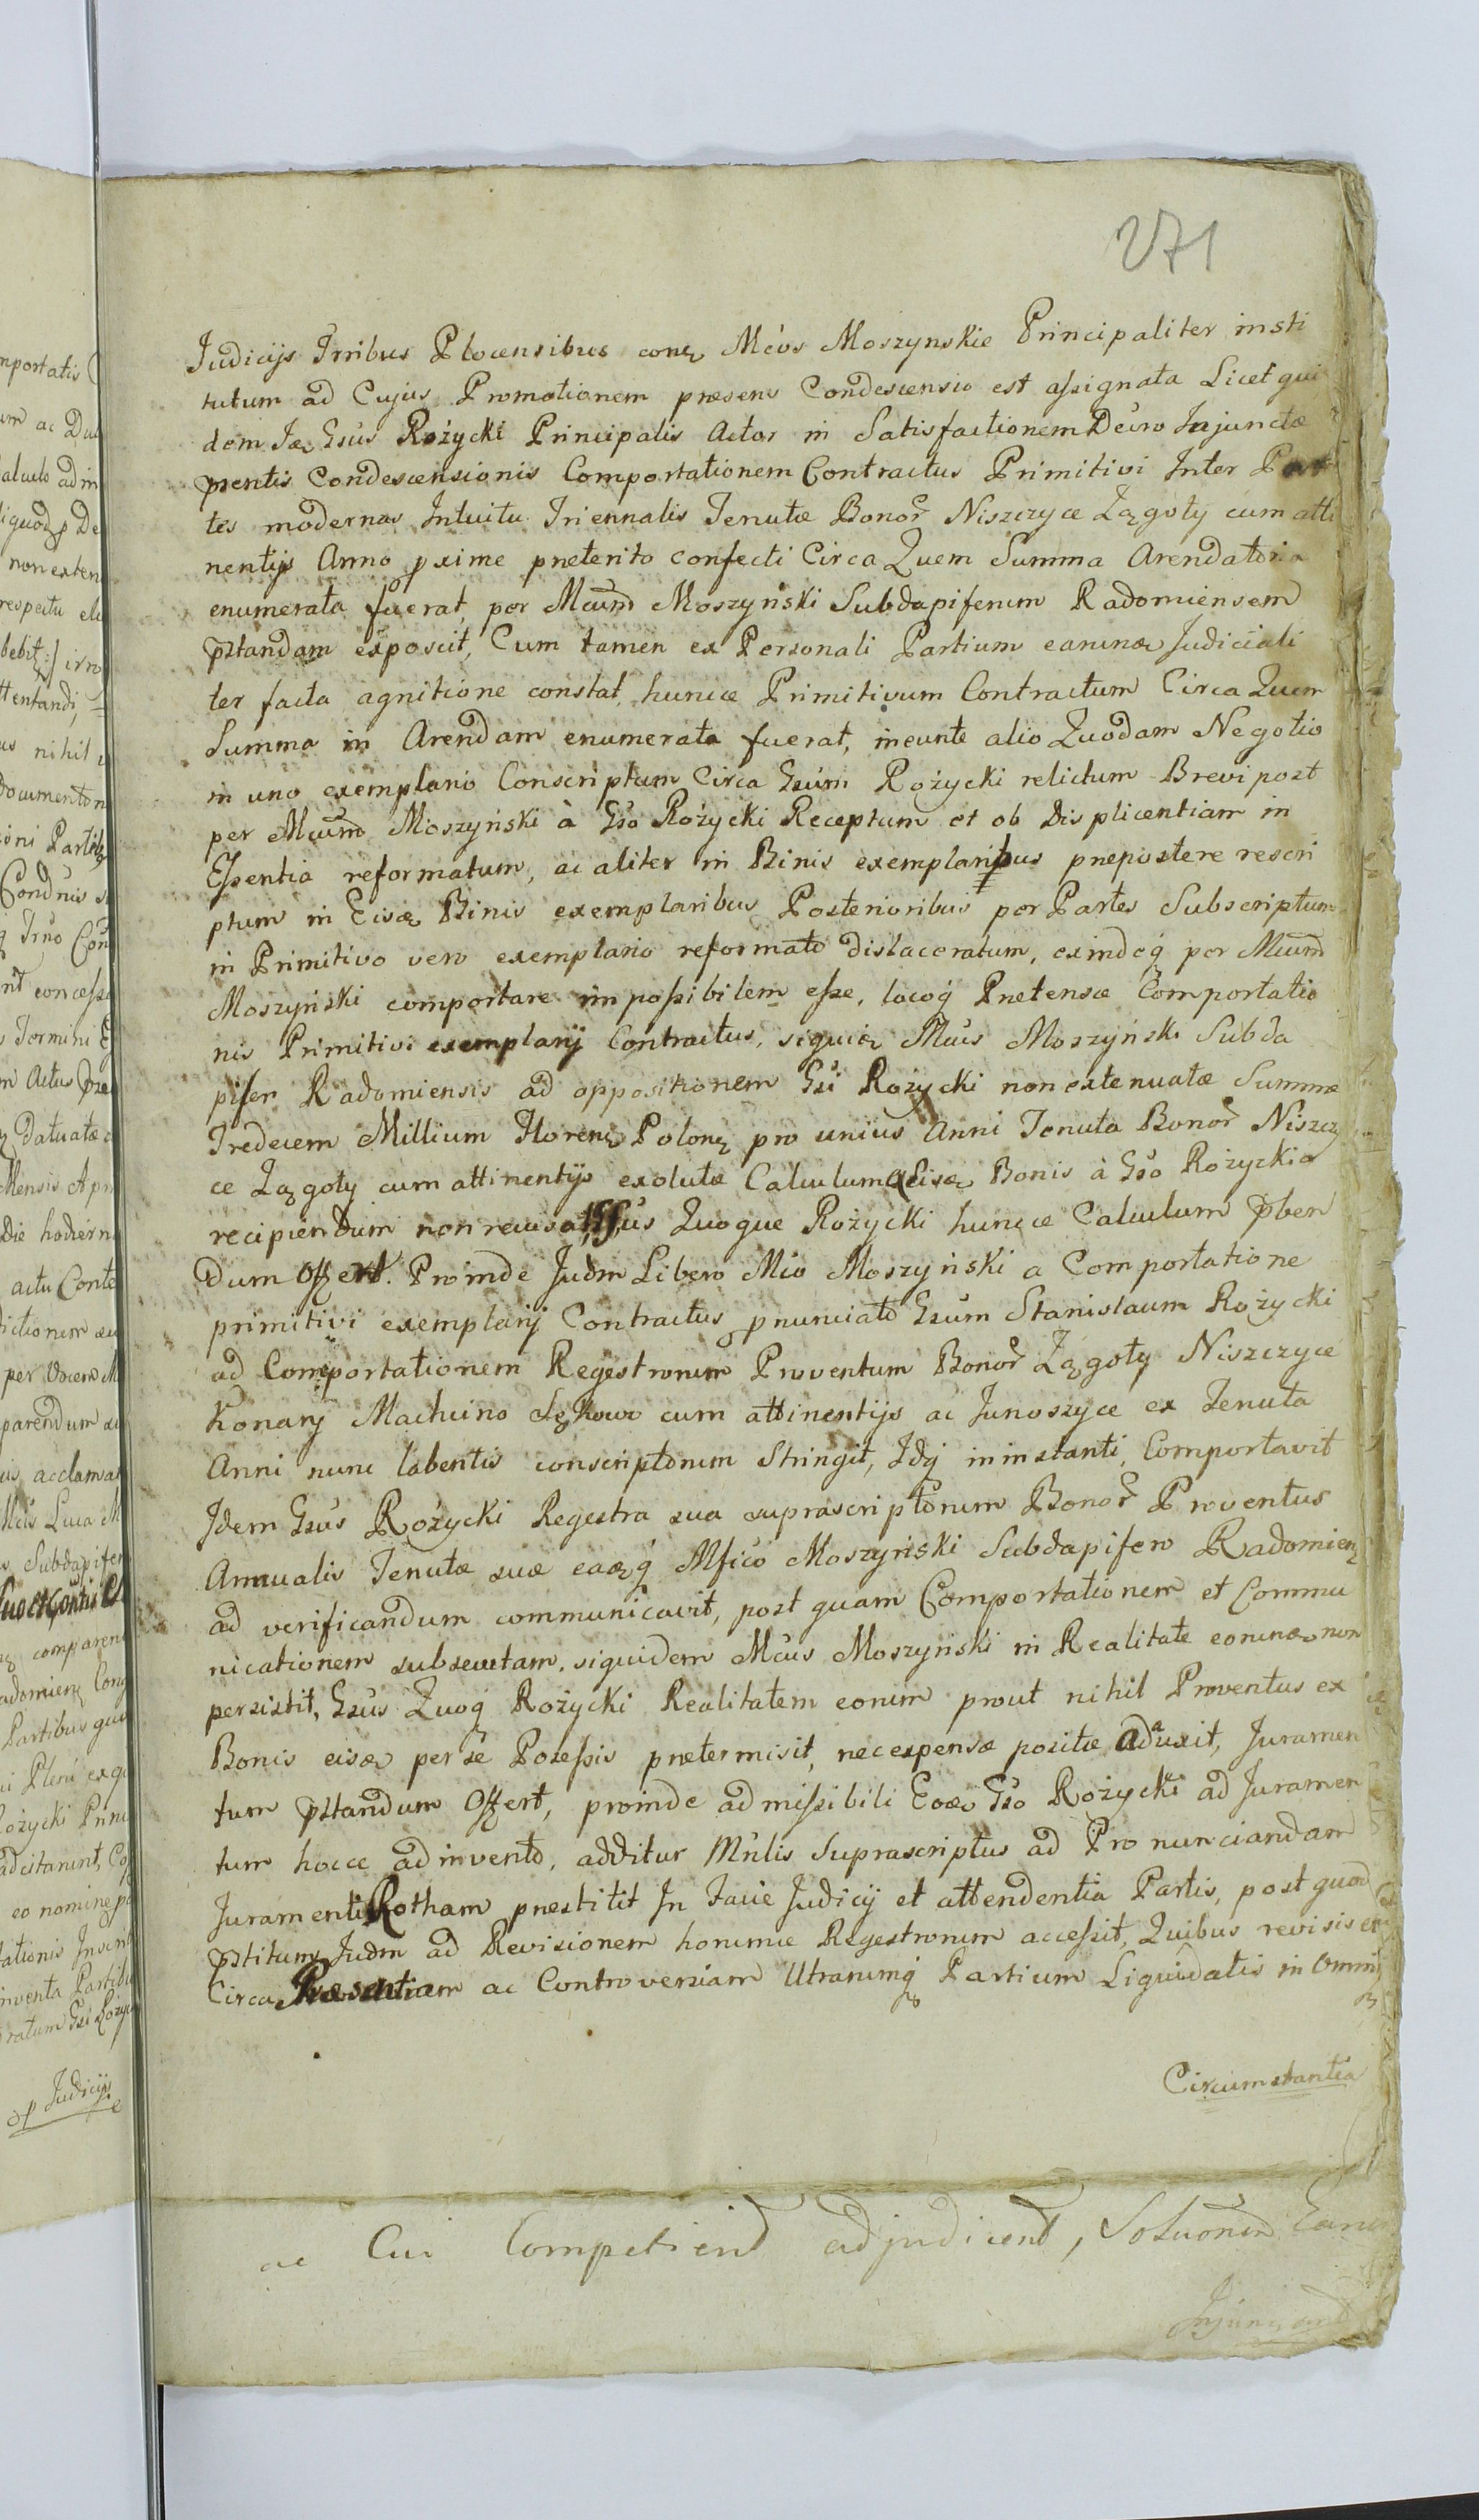 271
Judicijs Trribus Plocensibus conq Mcos Moszynskie Principaliter insti
tutum ad Cujus Promotionem præsens Condescensio est assignata Licet qui
dem Gsus Rożycki Principalis Actor in Satisfactionem Decro Injunctæ
pnentis Condescensionis Comportationem Contractus Primitivi Inter Par
tes modernas Intuitu Triennalis Tenutæ Bonor Niszczyce Zągoty cum atti
nentijs Anno pxime pneterito confecti Circa Quem Summa Arendatoria
enumerata fuerat, per Mcum Moszyński Subdapiferum Radomiensem
pstandam exposcit, Cum tamen ex Personali Partium earumq Judiciali
ter facta agnitione constat, huncce Primitivum Contractum Circa Quem
Summa in Arendam enumerata fuerat, ineunte alio Quodam Negotio
in uno exemplario Conscriptum Circa Gsum Rożycki relictum Brevi post
per Mcum Moszyński à Gso Rożycki Receptum et ob Displicentiam in
Essentia reformatum, ac aliter in Binis exemplaribus pnepostere rescri
ptum in Eisq Binis exemplaribus Posterioribus per Partes Subscriptum
in Primitivo vero exemplario reformato dislaceratum, exindeq per Mcum
Moszyński comportare impossibilem esse, locoq Pnetensæ Comportatio
nis Primitivi exemplarij Contractus, siquiq Mcus Moszyński Subda
pifer Radomiensis ad oppositionem Gsi Rożycki non extenuatæ Summæ
Tredecem Millium Florenq Polonq pro unius Anni Tenuta Bonor Niszczy
ce Zągoty cum attinentijs exolutæ Calculum Eisq Bonis à Gso Rożycki
recipiendum non recusat, Gsus Quoque Rożycki huncce Calculum pben
dum Offert. Proinde Judm Libero Mco Moszyński a Comportatione
primitivi exemplarij Contractus pnunciato Gsum Stanislaum Rożycki
ad Comportationem Regestrorum Proventum Bonor Zągoty Niszczyce
Konary Machcino Sękowo cum attinentijs ac Junoszyce ex Tenuta
Anni nunc labentis conscriptorum Stringit, Idq in instanti, Comportavit
Idem Gsus Rożycki Regestra sua suprascriptorum Bonor Proventus
Annualis Tenutæ suæ eaqq Mfico Moszyński Subdapifero Radomienq
ad verificandum communicavit, post quam Comportationem et Commu
nicationem subsecutam, siquidem Mcus Moszyński in Realitate eorumq non
persistit, Gsus Quoq Rożycki Realitatem eorum prout nihil Proventus ex
Bonis eisq per se Possessis pnetermisit, nec expensæ positæ aduxit, Juramen
tum pstandum Offert, proinde admissibili Eoq Gso Rożycki ad Juramen
tum hocce adinvento, additur Mnlis Suprascriptus ad Pronunciandam
Juramenti Rotham pnestitit In Facie Judicij et attendentia Partis, post quod
pstitum Judm ad Revisionem horumce Regestrorum accessit, Quibus revisis
Circa Præsentiam ac Controversiam Utrarumq Partium Liquidatis in Omni
Circumstantia
ac Cui Competiend adjudicend, Solutionem
Injungend